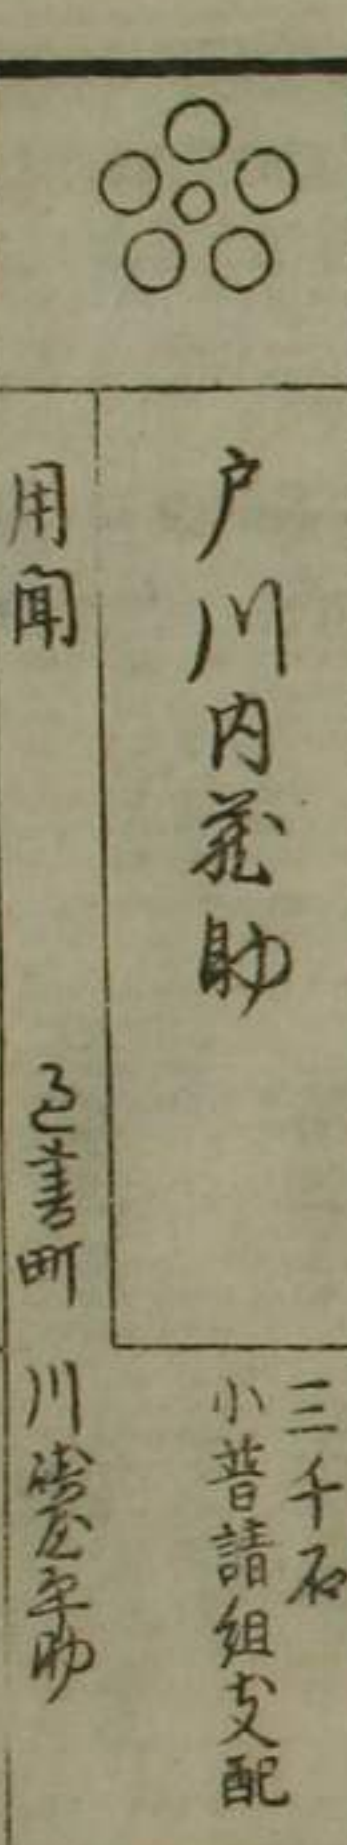 戸川内蔵助
三千石
小普請組支配
用聞
善町 川崎屋平助